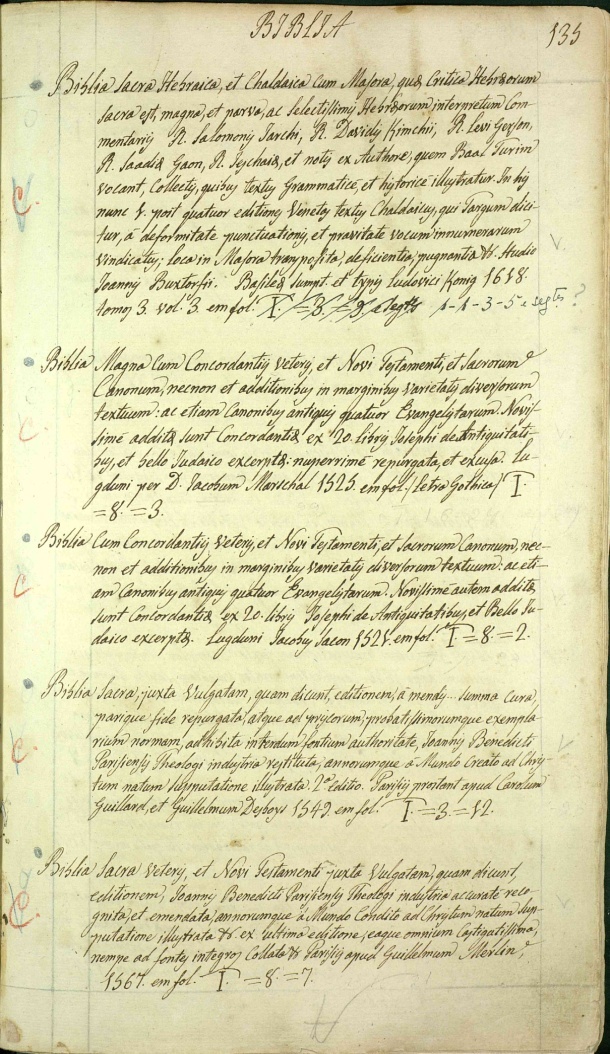 BIBLIA
135
Biblia Sacra Hebraica, et Chaldaica Cum Masora, quæ Critica Hebræorum
sacra est, magna, et parva, ac selectissimis Hebræorum interpretum Com-
mentariis R. Salomonis Jarchi, R. Davidis Kimchii, R. Levi Gerson,
R. Saadiæ Gaon, R. Jeschaiæ, et notis ex Authore, quem Baal Turim
vocant, Collectis, quibus textus Grammaticè, et historicè illustratur. In his
nunc 1. post quatuor editiones Venetas textus Chaldaicus, qui Targum dici-
tur, a deformitate punctuationis, et pravitate vocum innumerarum
vindicatus; loca in Masora transposita, deficientia, pugnantia &c. studio
Joannis Buxtorfii. Basileæ sumpt. et typis Ludovici Konig 1618.
tomos 3. vol. 3. em fol. I. =8. =8. e segtes 1-1-3-5 e segtes ?
Biblia Magna Cum Concordantiis Veteris, et Novi Testamenti, et Sacrorum
Canonum, necnon et additionibus in marginibus varietatis diversorum
textuum: ac etiam Canonibus antiquis quatuor Evangelistarum. Novis-
simè additæ sunt Concordantiæ ex 20. libris Josephi de Antiquitati-
bus, et bello Judaico excerptæ: nuperrimè repurgata, et excusa. Lu-
gduni per D. Jacobum Mareschal 1525. em fol. (Letra Gothica) I.
=8. =3.
Biblia Cum Concordantiis Veteris, et Novi Testamenti, et Sacrorum Canonum, nec-
non et additionibus in marginibus varietatis diversorum textuum: ac eti-
am Canonibus antiquis quatuor Evangelistarum. Novissimè autem additæ
sunt Concordantiæ ex 20. libris Josephi de Antiquitatibus, et Bello Ju-
daico excerptæ. Lugduni Jacobus Sacon 1521. em fol. I =8. =2.
Biblia Sacra, juxta Vulgatam, quam dicunt, editionem, à mendis... summa Cura,
parique fide repurgata, atque ad priscorum, probatissimorumque exempla-
rium normam, adhibita interdum fontium authoritate, Joannis Benedicti
Parisiensis Theologi industria restituta, annorumque a Mundo Creato ad Chris-
tum natum supputatione illustrata. 2ª editio. Parisiis prostant apud Carolam
Guillard, et Guillelmum Desboys 1549. em fol. I. =3. =12.
Biblia Sacra Veteris, et Novi Testamenti juxta Vulgatam, quam dicunt,
editionem, Joannis Benedicti Parisiensis Theologi industria accurate reco-
gnita, et emendata, annorumque à Mundo Condito ad Christum natum sup-
putatione illustrata &c. ex ultima editione, eaque omnium Castigatissima,
nempe ad fontes integros Collata &c. Parisiis apud Guillelmum Merlin,
1567. em fol. I. =8. =7.